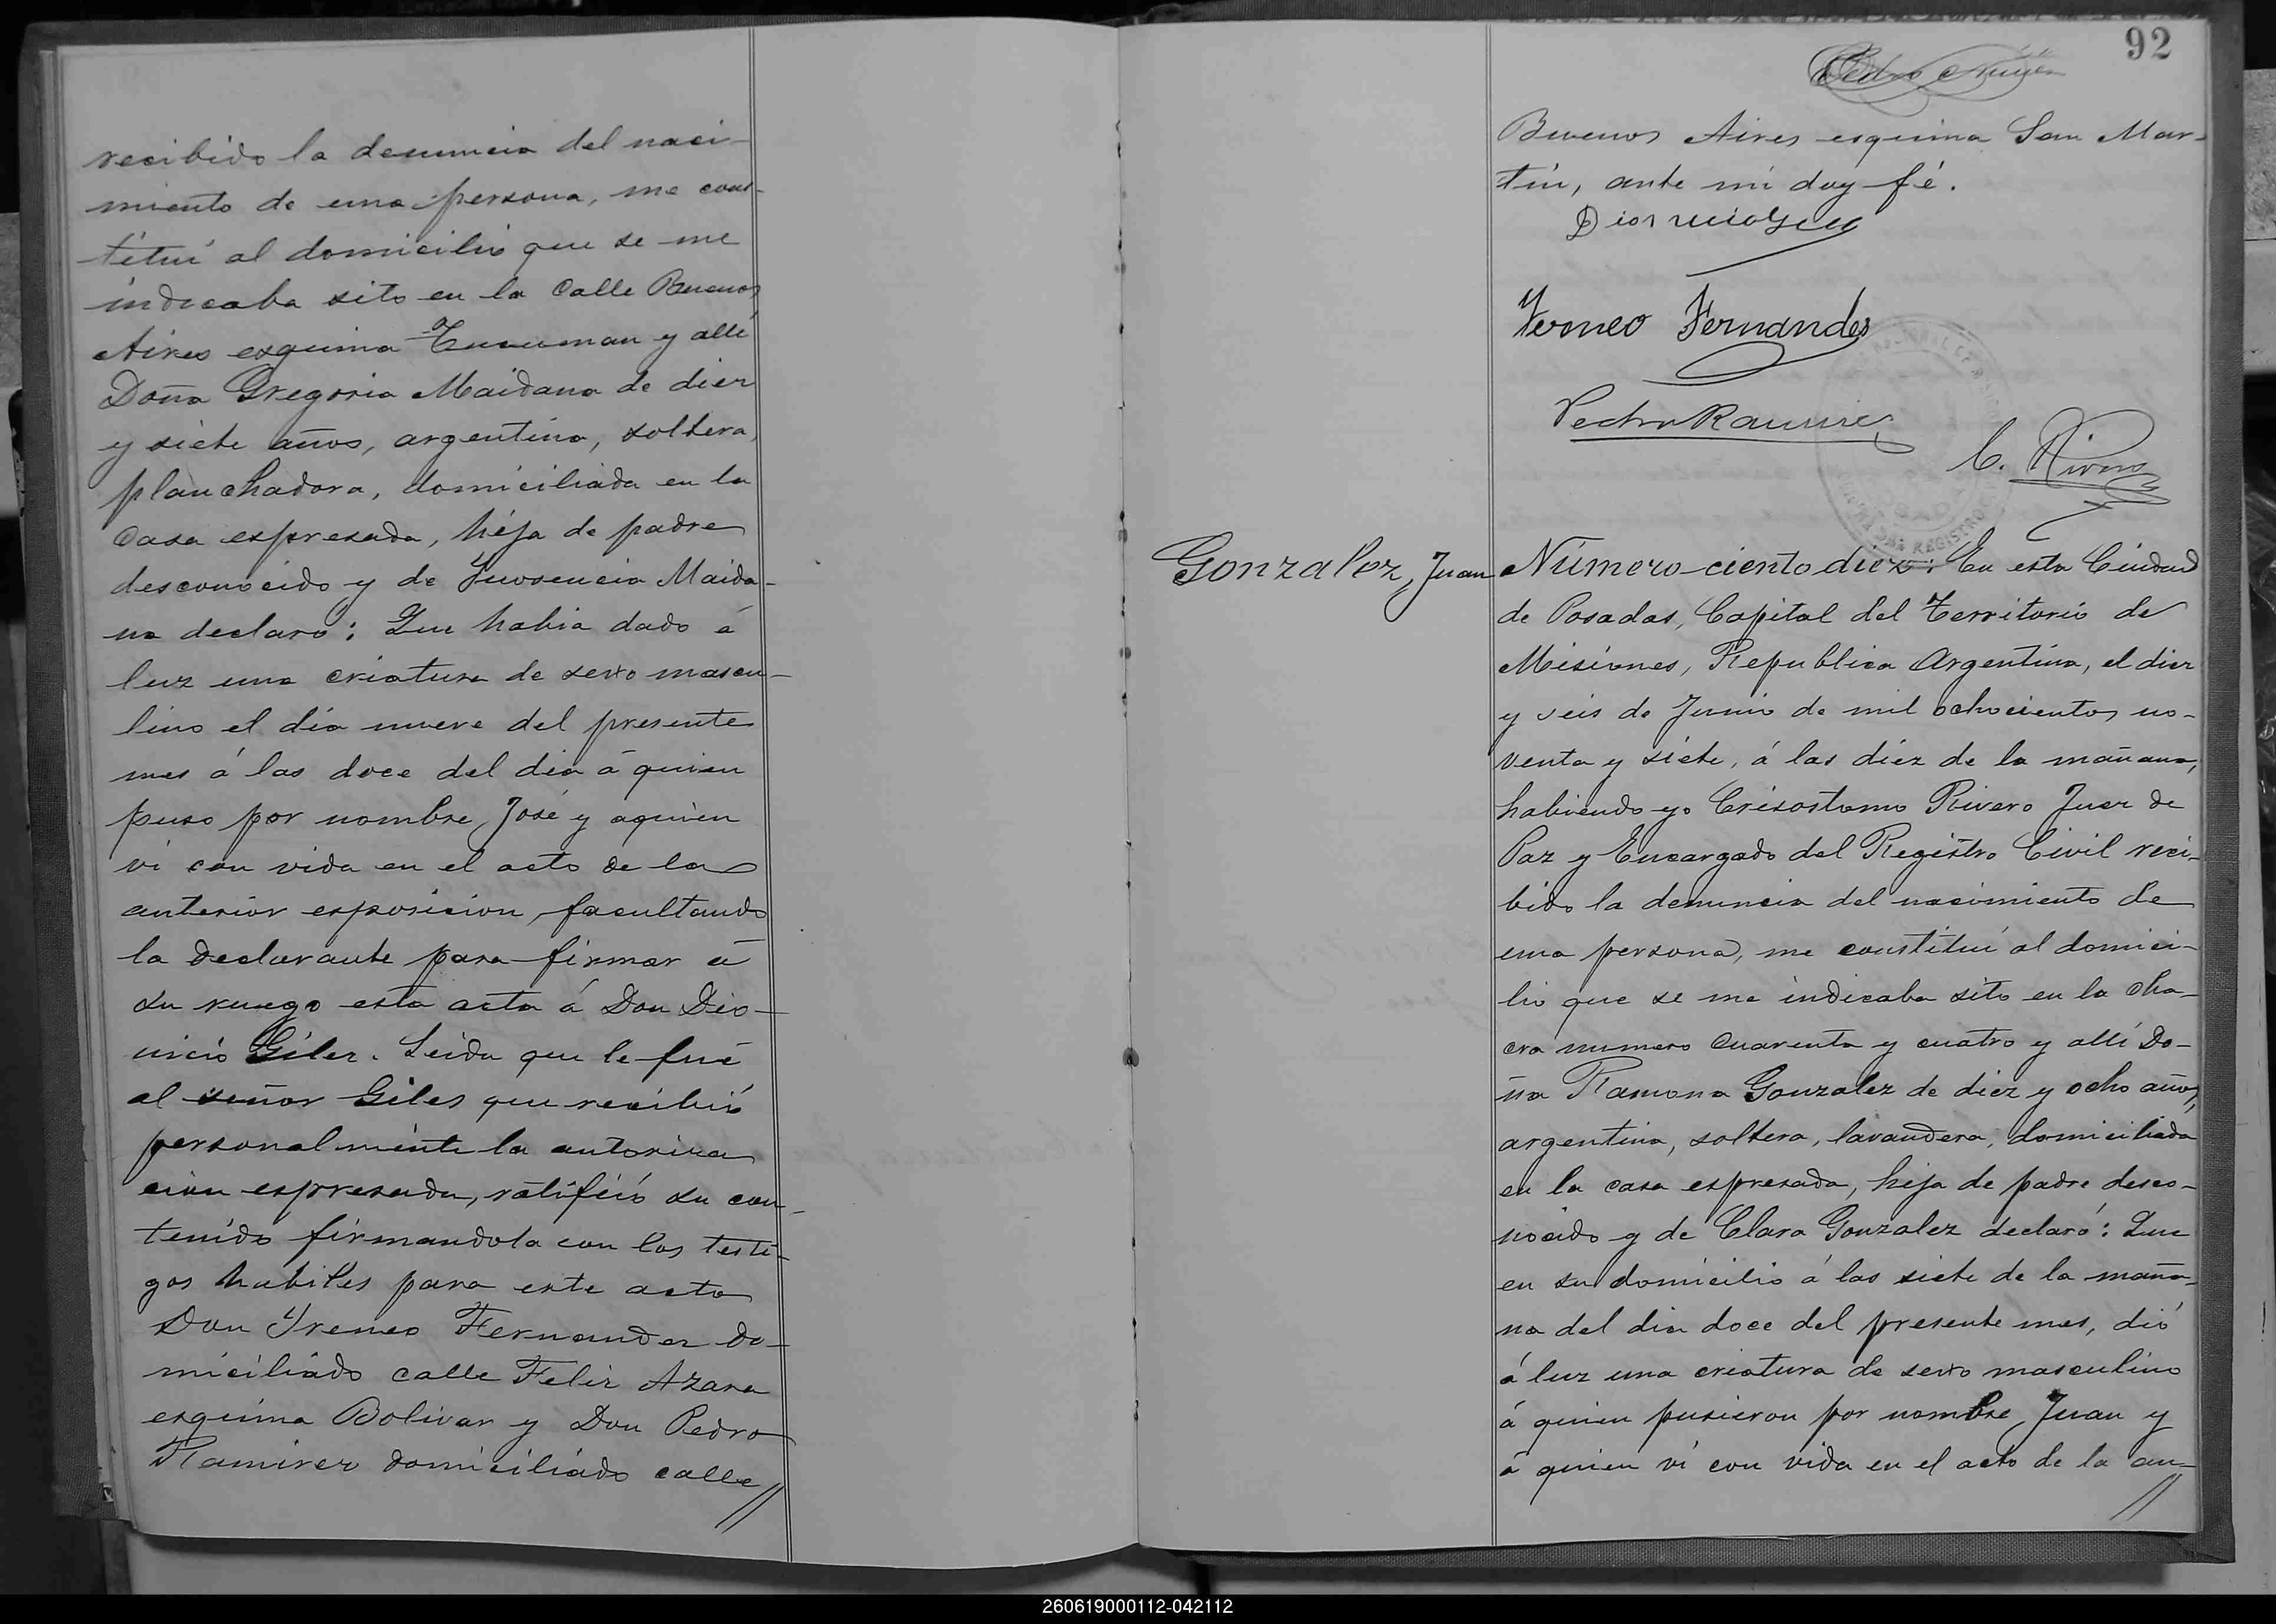 recibido la denuncia del naci-
miento de una persona, me cons-
tituí al domicilio que se me
indicaba sito en la Calle Buenos
Aires esquina Tucuman y allí
Doña Gregoria Maidana de diez
y siete años, argentina, soltera,
planchadora, domiciliada en la
Casa espresada, hija de padre
desconocido y de Inosencia Maida-
na declaro: Que habia dado á
luz una criatura de sexo mascu-
lino el día nueve del presente
mes á las doce del dia á quien
puso por nombre, José y aquien
vi con vida en el acto de la
anterior esposicion, facultando
la declarante para firmar á
su ruego esta acta á Don Dio-
nicio Giles. Leida que le fué
al señor Giles que recibió
personalmente la autoriza
cion espresada, ratificó su con-
tenido firmandola con los testi-
gos habiles para este acto
Don Yreneo Fernandez do-
miciliado calle Felix Azara
esquina Bolivar y Don Pedro
Ramirez domiciliado calle
//
92
Pedro
Buenos Aires esquina San Mar-
tín, ante mi doy fé.
Yreneo Fernandes
Pedro Ramirez
C. Rivero
REGISTRO
Gonzalez, Juan
Número ciento diez: En esta Ciudad
de Posadas, Capital del Territorio de
Misiones, Republica Argentina, el diez
y seis de Junio de mil ochocientos no-
venta y siete, á las diez de la mañana,
habiendo yo Crisostomo Rivero Juez de
Paz y Encargado del Registro Civil reci-
bido la denuncia del nacimiento de
una persona, me constituí al domici-
lio que se me indicaba sito en la cha-
cra numero cuarenta y cuatro y allí Do-
ña Ramona Gonzalez de diez y ocho años,
argentina, soltera, lavandera, domiciliada
en la casa espresada, hija de padre desco-
nocido y de Clara Gonzalez declaró: Que
en su domicilio á las siete de la maña-
na del dia doce del presente mes, dió
á luz una criatura de sexo masculino
á quien pusieron por nombre, Juan y
á quien ví con vida en el acto de la an-
//
260619000112-042112